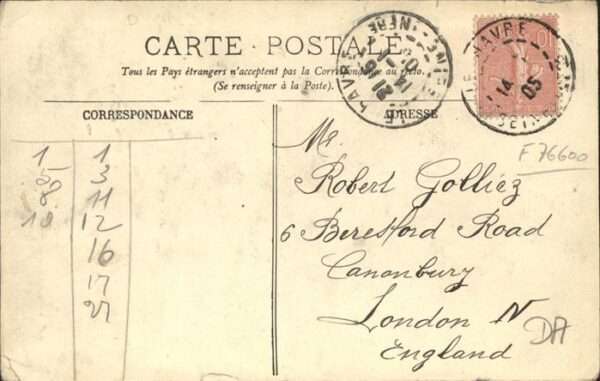 CARTE POSTALE
Tous les Pays étrangers n'acceptent pas la Correspondance au dos.
(Se renseigner à la Poste).
CORRESPONDANCE
ADRESSE
LE HAVRE
14
05
LE HAVRE
14
05
10
F 76600
Mr.
Robert Golliez
6 Beresford Road
Canonbury
London N
England
DA
1 1
3
11
18 12
16
17
27